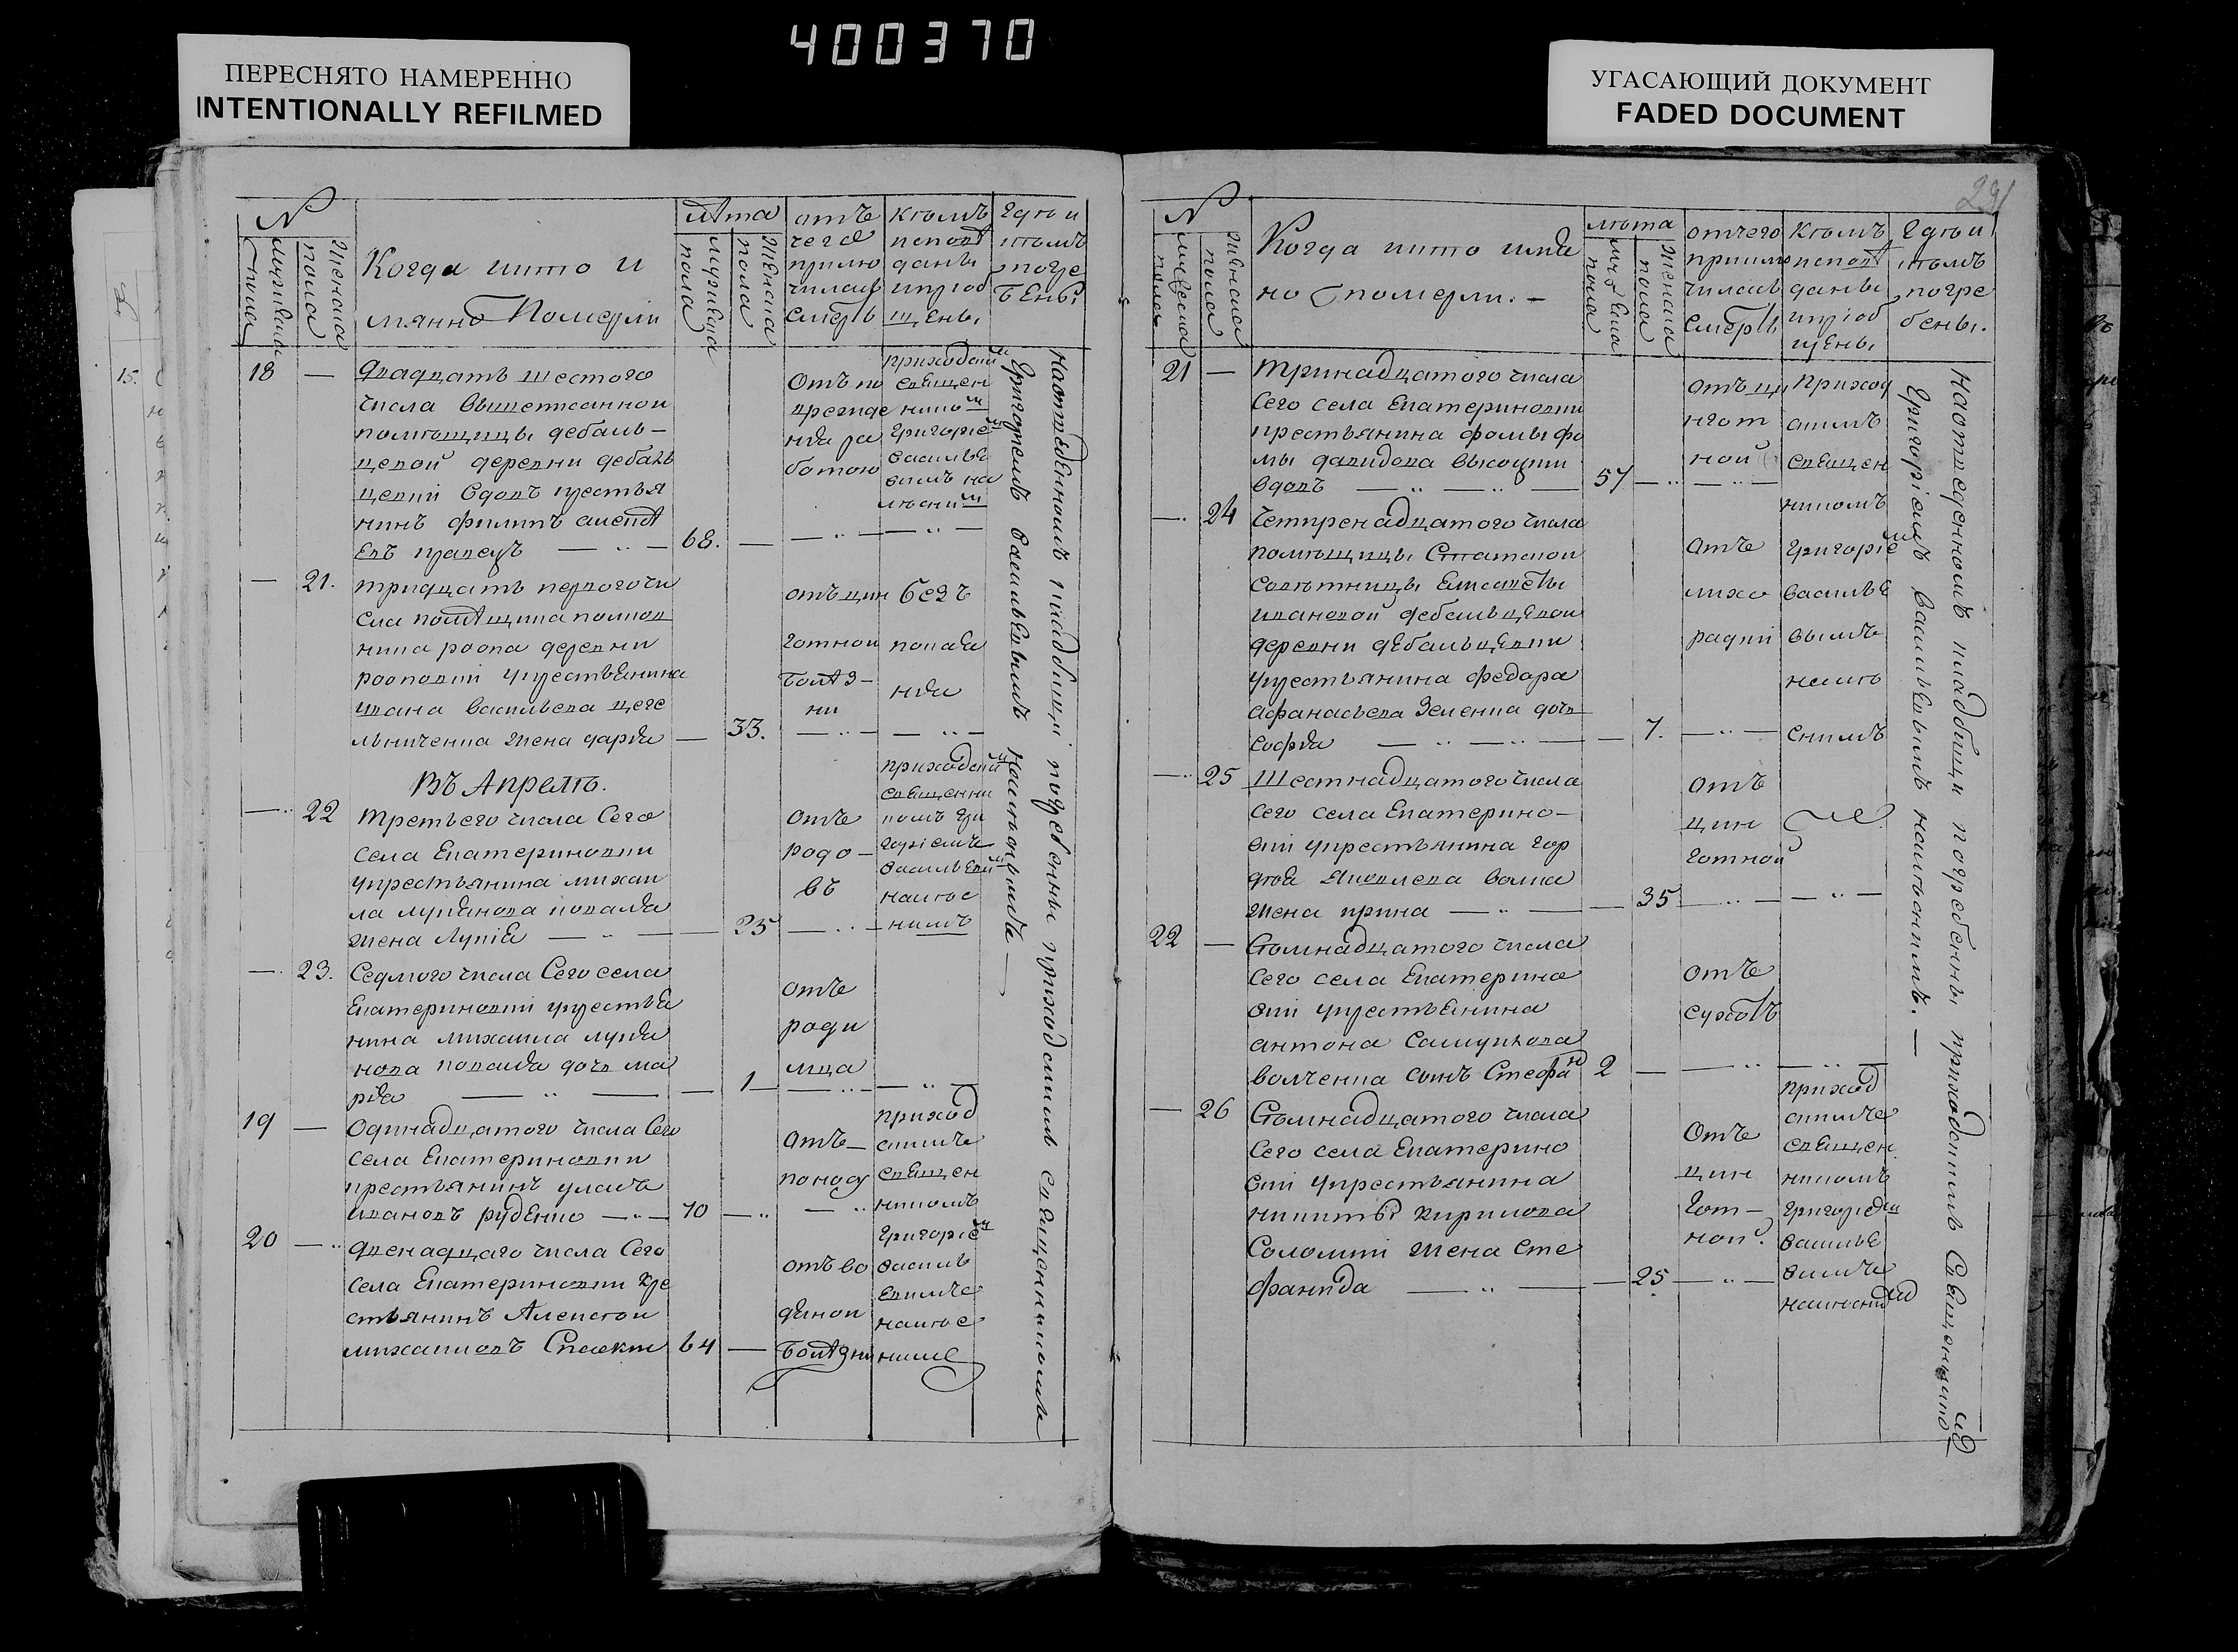 400370
ПЕРЕСНЯТО НАМЕРЕННО
INTENTIONALLY REFILMED
УГАСАЮЩИЙ ДОКУМЕНТ
FADED DOCUMENT
№
мужеска пола
женска пола
Когда и кто и
мянно Померли
лѣта
мужеска пола
женска пола
отъ
чего
приклю
чилась
смерть
кѣмъ
исповѣ
даны
и приоб
щены
гдѣ и
кѣмъ
погре
бены
18 — двадцать шестого
числа вышеписанной
помѣщицы дебаль-
цевой деревни дебаль
цевки вдовъ крестья
нинъ филипъ алексѣ
евъ кравецъ — 68. —
отъ по
ба
ботою
приходским
священ
ником
григорием
василье
вимъ на
— 21. тридцать первого чи
сла помѣщика полков
ника роопа деревни
рооповки у крестьянина
ивана васильева
жена дарья — 33.
отъ чин
готной
болѣз-
ни
безъ
покая
ния
Въ Апрелѣ.
— 22 третьего числа сего
села Екатериновки
у крестьянина михаи
ла лукянова коваля
жена Лукія — 25
отъ
родо-
въ
приходским
священни
комъ гри
горіемъ
васильевим
калюс
нимъ
— 23. Седмого числа Сего села
Екатериновки у крестья
нина михаила лукя
нова коваля дочь ма
рья — 1
отъ
роди
мца
19 — одинадцатого числа Сего
села Екатериновки
крестьянинъ уласъ
ивановъ руденко — 70 —
отъ
приход
скимъ
священ
никомъ
20 — двенадцаго числа Сего
села Екатериновки кре
стьянинъ Алексѣй
михаиловъ 64 —
отъ во
дяной
болѣзни
григорием
василь
евимъ
калюс
ним
На отведенномъ кладбищи погребены приходскимъ священникомъ
григориемъ васильевимъ
231
№
мужеска пола
женска пола
Когда и кто имя
но померли. —
лѣта
мужеска пола
женска пола
отчего
приклю
чилась
смерть
кѣмъ
исповѣ
даны
и приоб
щены
гдѣ и
кѣмъ
погре
бены.
21 — тринадцатого числа
сего села Екатериновки
крестьянина фомы фо
мы давидова
вдовъ 57 —
отъ ци
нгот
ной
приход
скимъ
священ
никомъ
— 24 четиренадцатого числа
помѣщицы Статской
совѣтницы Елисаветы
ивановой дебальцевой
деревни дебальцевки
у крестьянина федора
афанасьева зеленка дочь
софья — 7.
отъ
григорие
василье
вымъ
калю
снимъ
— 25 Шестнадцатого числа
сего села Екатерино-
вки у крестьянина гор
дѣя яковлева волка
жена ирина — 35
отъ
цин
готной
22 — Семнадцатого числа
сего села Екатерино
вки у крестьянина
антона самуилова
волченка сынъ Стефан 2 —
отъ
сухотъ
— 26 Семнадцатого числа
сего села Екатерино
вки у крестьянина
никиты кирилова
Соломки жена сте
фанида — 25
отъ
цин
гот-
ной.
приход
скимъ
священ
никомъ
григорием
василье
вимъ
калюсним
На отведенномъ кладбищи погребены приходскимъ священникомъ
григоріемъ васильевымъ калюснимъ. —